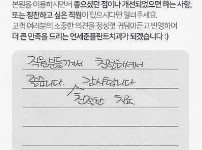 본원을 이용하시면서 좋으셨던 점이나 개선되었으면 하는 사항,
또는 칭찬하고 싶은 직원이 있으시다면 알려주세요.
고객 여러분의 소중한 의견을 정성껏 귀담아듣고 반영하여
더 큰 만족을 드리는 연세준플란트치과가 되겠습니다 :)
직원분들께서 친절하셔서
좋습니다. 감사합니다
친절한 치료